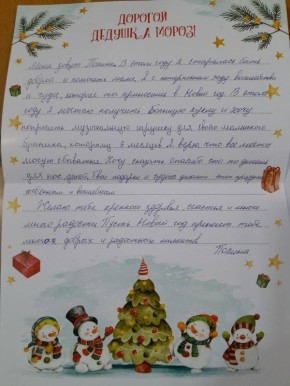 ДОРОГОЙ
ДЕДУШКА МОРОЗ!
Меня зовут Полина. В этом году я старалась быть
доброй и помогать маме. Я с нетерпением жду волшебства
и чуда, которые ты принесешь в Новый год. В этом
году я мечтаю получить большую куклу и хочу
попросить музыкальную игрушку для моего маленького
братика, которому 6 месяцев. Я верю, что все мечты
могут сбываться. Хочу сказать спасибо за то что делаешь
для нас, детей. Твои подарки и чудеса делают этот праздник
и волшебным.
Желаю тебе крепкого здоровья, счастья и много
много радости. Пусть Новый год принесет тебе
только добрых и радостных моментов.
Полина